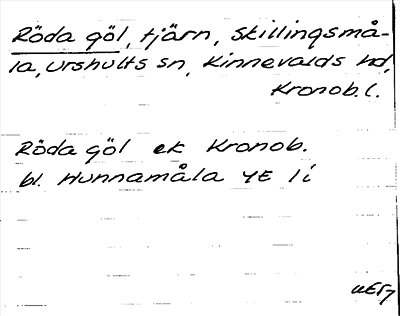 Röda göl, tjärn, Skillingsmå-
la, Urshults sn, Kinnevalds hd,
Kronob. l.
Röda göl ek Kronob.
bl. Hunnamåla YE 1 i